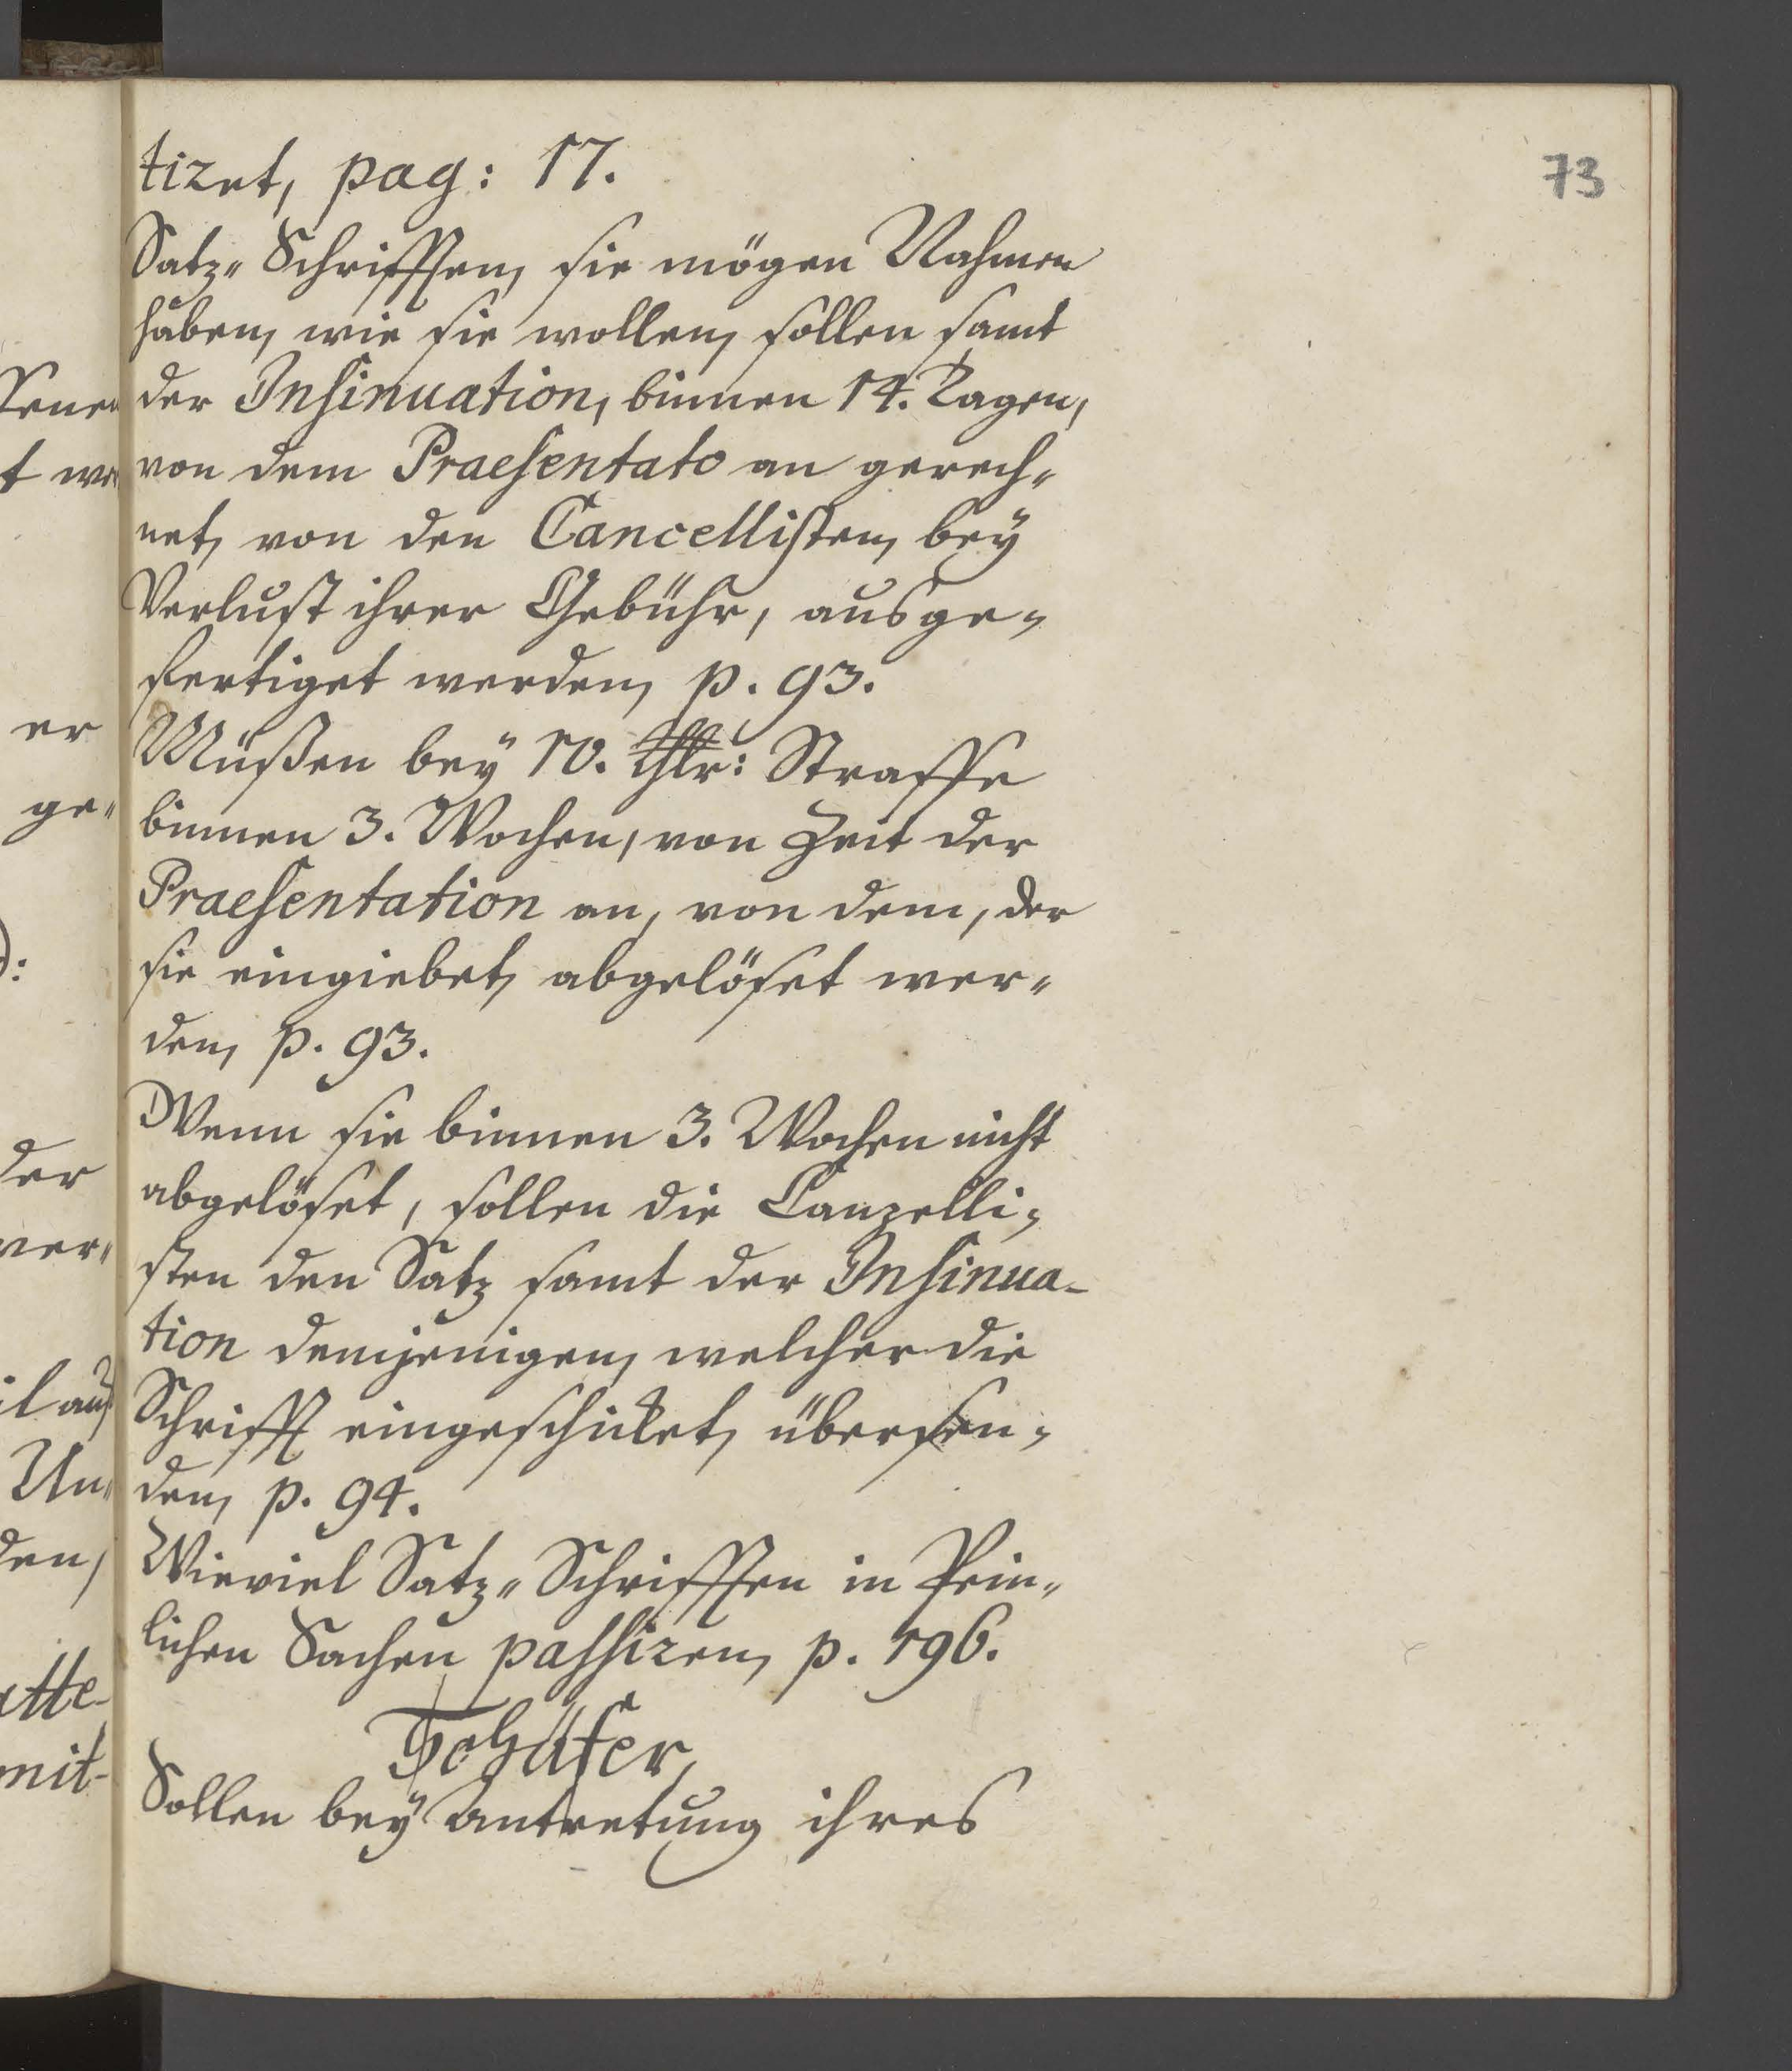 73
tiret, pag: 17.
Satz„ Schrifften, sie mögen Nahmen
haben, wie sie wollen, sollen samt
der Insinuation, binnen 14. Tagen,
von dem Praesentato an gerech„
net, von den Cancellisten, bey
Verlust ihrer Gebühr, ausge„
fertiget werden, p. 93.
Müßen bey 10. Thlr: Straffe
binnen 3. Wochen, von Zeit der
Praesentation an, von dem, der
sie eingiebet, abgelöset wer„
den, p. 93.
Wenn sie binnen 3. Wochen nicht
abgelöset, sollen die Canzelli„
sten den Satz samt der Insinua-
tion demjenigen, welcher die
Schrifft eingeschicket, übersen„
den, p. 94.
Wieviel Satz„ Schrifften in Pein„
lichen Sachen passiren, p. 196.
Schäfer,
Sollen bey Antretung ihres
er
ge„
der
wer„
Un„
den,
mit-